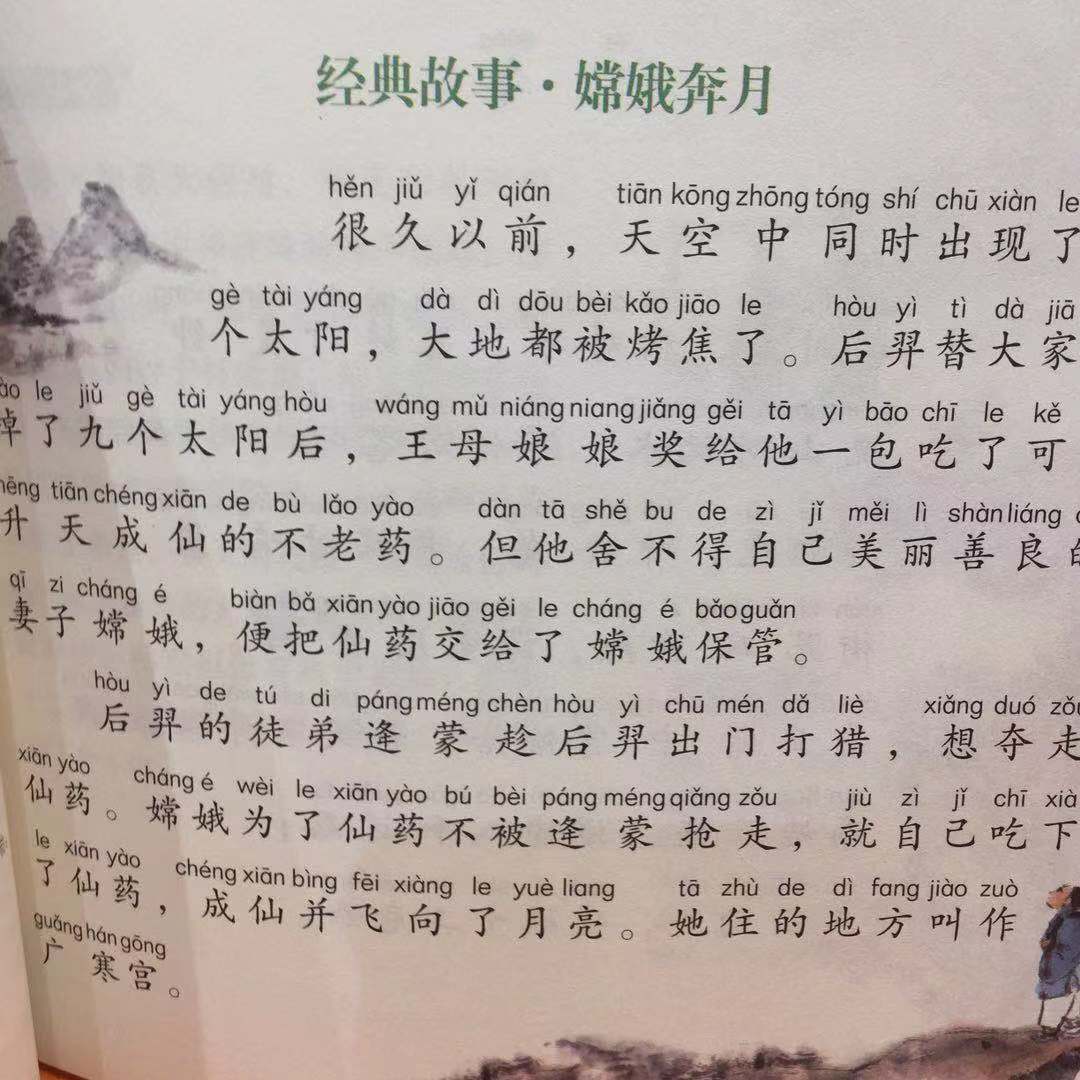 经典故事·嫦娥奔月
hěn jiǔ yǐ qián tiān kōng zhōng tóng shí chū xiàn le
很久以前，天空中同时出现了
gè tài yáng dà dì dōu bèi kǎo jiāo le hòu yì tì dà jiā
个太阳，大地都被烤焦了。后羿替大家
le jiǔ gè tài yáng hòu wáng mǔ niáng niang jiǎng gěi tā yì bāo chī le kě
掉了九个太阳后，王母娘娘奖给他一包吃了可
tiān chéng xiān de bù lǎo yào dàn tā shě bu de zì jǐ měi lì shàn liáng
升天成仙的不老药。但他舍不得自己美丽善良的
qī zi cháng é biàn bǎ xiān yào jiāo gěi le cháng é bǎo guǎn
妻子嫦娥，便把仙药交给了嫦娥保管。
hòu yì de tú di páng méng chèn hòu yì chū mén dǎ liè xiǎng duó zǒu
后羿的徒弟逄蒙趁后羿出门打猎，想夺走
xiān yào cháng é wèi le xiān yào bú bèi páng méng qiǎng zǒu jiù zì jǐ chī xià
仙药。嫦娥为了仙药不被逄蒙抢走，就自己吃下
le xiān yào chéng xiān bìng fēi xiàng le yuè liang tā zhù de dì fang jiào zuò
了仙药，成仙并飞向了月亮。她住的地方叫作
guǎng hán gōng
广寒宫。